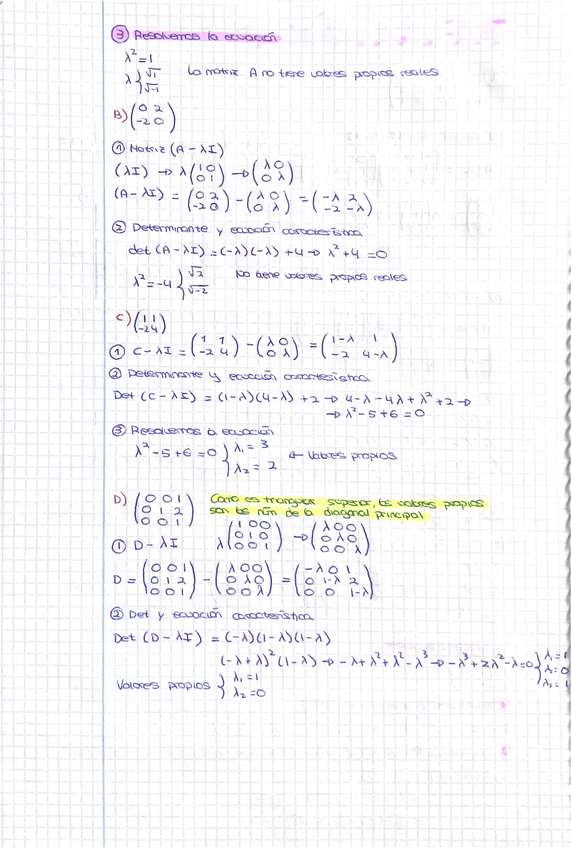 ③ Resolvemos la ecuación
λ² = 1
λ { √1 √-1 La matriz A no tiene valores propios reales
B) (0 2 / -2 0)
① Matriz (A - λI)
(λI) → λ (1 0 / 0 1) → (λ 0 / 0 λ)
(A - λI) = (0 2 / -2 0) - (λ 0 / 0 λ) = (-λ 2 / -2 -λ)
② Determinante y ecuación característica
det (A - λI) = (-λ)(-λ) + 4 → λ² + 4 = 0
λ² = -4 { √2 √-2 No tiene valores propios reales
C) (1 1 / -2 4)
① C - λI = (1 1 / -2 4) - (λ 0 / 0 λ) = (1-λ 1 / -2 4-λ)
② Determinante y ecuación característica
Det (C - λI) = (1-λ)(4-λ) + 2 → 4 - λ - 4λ + λ² + 2 →
→ λ² - 5 + 6 = 0
③ Resolvemos la ecuación
λ² - 5 + 6 = 0 { λ₁ = 3 λ₂ = 2 ← Valores propios
D) (0 0 1 / 0 1 2 / 0 0 1) Como es triangular superior, los valores propios
son los núm de la diagonal principal
① D - λI λ (1 0 0 / 0 1 0 / 0 0 1) → (λ 0 0 / 0 λ 0 / 0 0 λ)
D = (0 0 1 / 0 1 2 / 0 0 1) - (λ 0 0 / 0 λ 0 / 0 0 λ) = (-λ 0 1 / 0 1-λ 2 / 0 0 1-λ)
② Det y ecuación característica
Det (D - λI) = (-λ)(1-λ)(1-λ)
(-λ+λ)² (1-λ) → -λ + λ² + λ² - λ³ → -λ³ + 2λ² - λ = 0 { λ₁ = 1 λ₂ = 0 λ₃ = 1
Valores propios { λ₁ = 1 λ₂ = 0